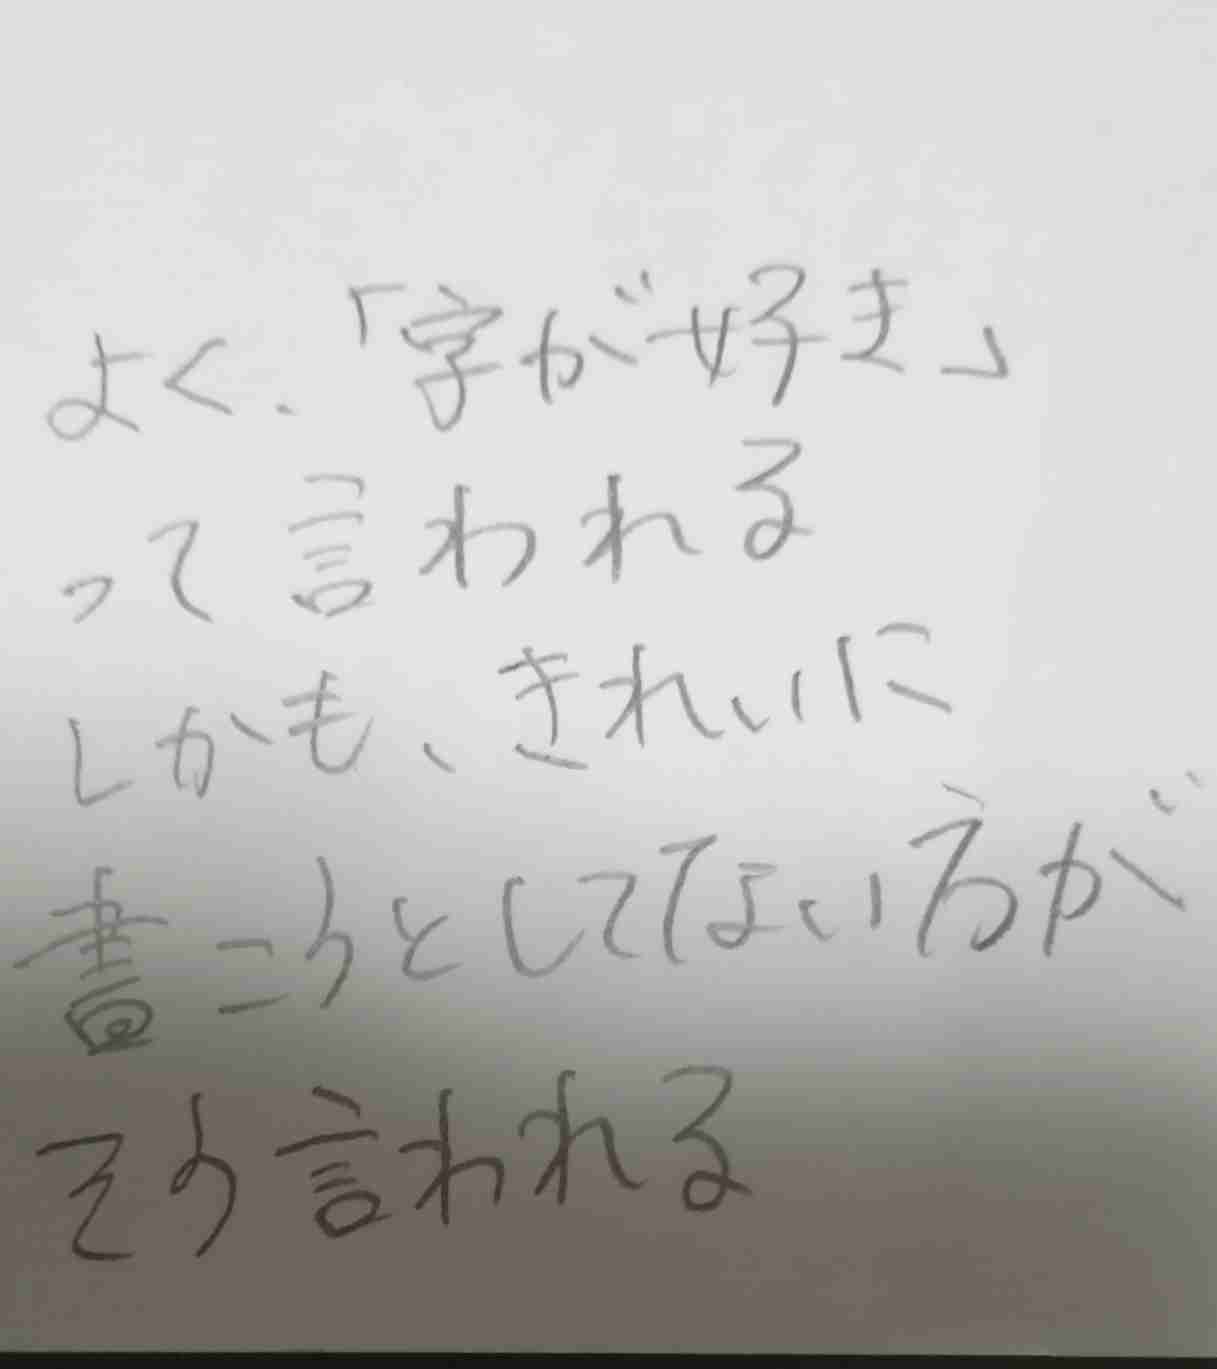 よく、「字が好き」
って言われる
しかも、きれいに
書こうとしてない方が
そう言われる